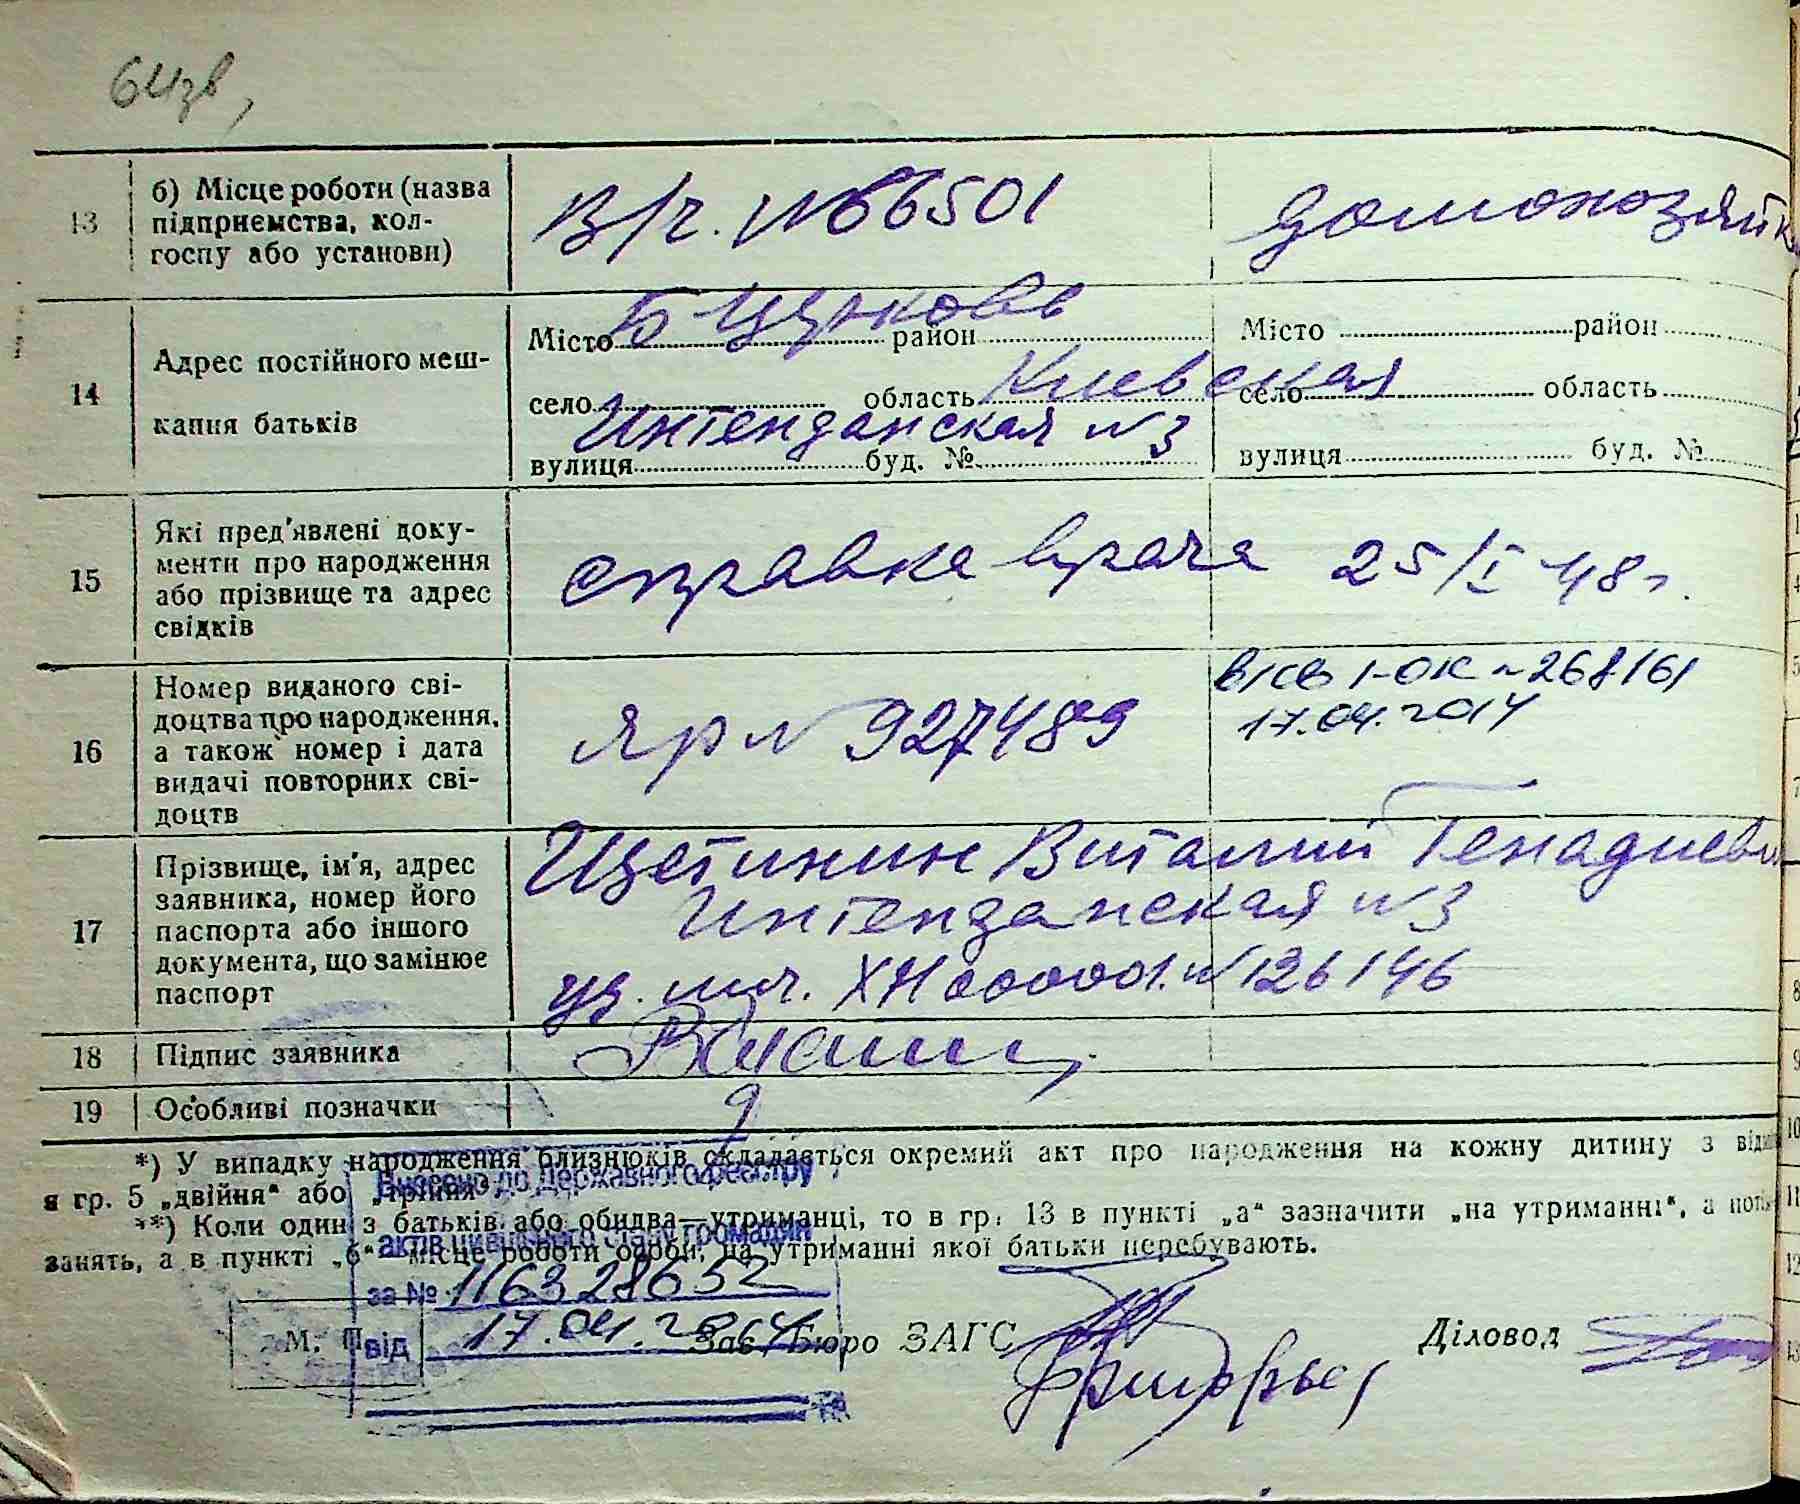 13 б) Місце роботи (назва підприємства, колгоспу або установи) В/ч. №66501 домохозяйк
14 Адрес постійного мешкання батьків
Місто Б Церковь район Місто район
село область Киевская село область
вулиця Интенданская буд. № №3 вулиця буд. №
15 Які пред'явлені документи про народження або прізвище та адрес свідків справка врача 25/I 48 г.
16 Номер виданого свідоцтва про народження, а також номер і дата видачі повторних свідоцтв Яр № 927489 I-ОК №268161
17.04.2014
17 Прізвище, ім'я, адрес заявника, номер його паспорта або іншого документа, що замінює паспорт
Щетинин Виталий Генадиеви
Интенданская №3
уд. лич. №126146
18 Підпис заявника
19 Особливі позначки
*) У випадку народження близнюків складається окремий акт про народження на кожну дитину з
я гр. 5 „двійня“ або „трійня“
**) Коли один з батьків або обидва—утриманці, то в гр. 13 в пункті „а“ зазначити „на утриманні“, а
занять, а в пункті „б“ місце роботи особи, на утриманні якої батьки перебувають.
Внесено до Державного реєстру
актів цивільного стану громадян
за № 116328652
від 17.04.2014
М. П. Зав. Бюро ЗАГС Діловод